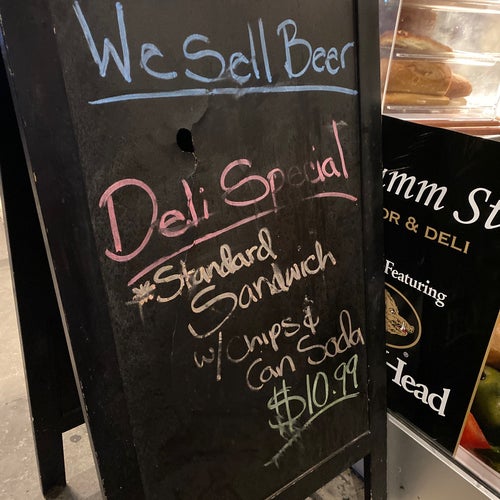 We Sell Beer
Deli Special
*Standard
Sandwich
w/ Chips &
Can Soda
$10.99
OR & DELI
Featuring
Head